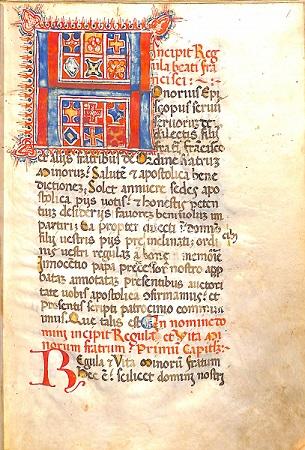 Incipit Reg
ula beati fra
ncisci.
Onorius Epi
scopus servus
servorum dei
dilectis filiis
fratri francisco
et aliis fratribus de Ordine fratrum
Minorum: Salutē & apostolicā bene
dictionez; Solet annuere sedes apo
stolica piis votis; & honestis peten
tium desideriis favorez benivolum im
partiri: Ea propter
filii vestris piis precib; inclinati: ordi
nis vestri regulaz a bone memorie
Innocentio papa predecessore nostro app
robatam annotatam presentibus auctori
tate vobis apostolica ɔfirmamus: et
presentis scripti patrocinio commu
nimus. Que talis est. In nomine do
mini incipit Regula et Vita Mi
norum fratrum: Primū Capitlz
Regula & Vita Minorū fratrum
hec ē: scilicet domini nostri